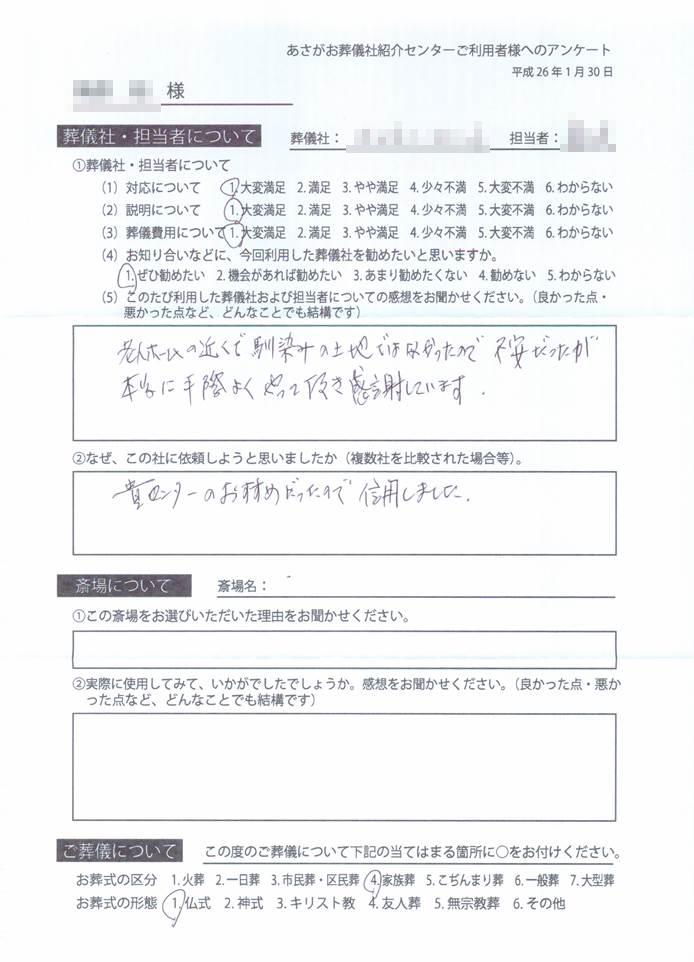 あさがお葬儀社紹介センターご利用者様へのアンケート
平成26年1月30日
様
葬儀社・担当者について 葬儀社： 担当者：
①葬儀社・担当者について
(1) 対応について 1.大変満足 2.満足 3.やや満足 4.少々不満 5.大変不満 6.わからない
(2) 説明について 1.大変満足 2.満足 3.やや満足 4.少々不満 5.大変不満 6.わからない
(3) 葬儀費用について 1.大変満足 2.満足 3.やや満足 4.少々不満 5.大変不満 6.わからない
(4) お知り合いなどに、今回利用した葬儀社を勧めたいと思いますか。
1.ぜひ勧めたい 2.機会があれば勧めたい 3.あまり勧めたくない 4.勧めない 5.わからない
(5) このたび利用した葬儀社および担当者についての感想をお聞かせください。（良かった点・
悪かった点など、どんなことでも結構です）
老人ホームの近くで馴染みの土地ではなかったので 不安だったが
本当に手際よくやって頂き感謝しています.
②なぜ、この社に依頼しようと思いましたか（複数社を比較された場合等）。
貴センターのお勧めだったので 信用しました.
斎場について 斎場名：
①この斎場をお選びいただいた理由をお聞かせください。
②実際に使用してみて、いかがでしたでしょうか。感想をお聞かせください。（良かった点・悪か
った点など、どんなことでも結構です）
ご葬儀について この度のご葬儀について下記の当てはまる箇所に○をお付けください。
お葬式の区分 1.火葬 2.一日葬 3.市民葬・区民葬 4.家族葬 5.こぢんまり葬 6.一般葬 7.大型葬
お葬式の形態 1.仏式 2.神式 3.キリスト教 4.友人葬 5.無宗教葬 6.その他